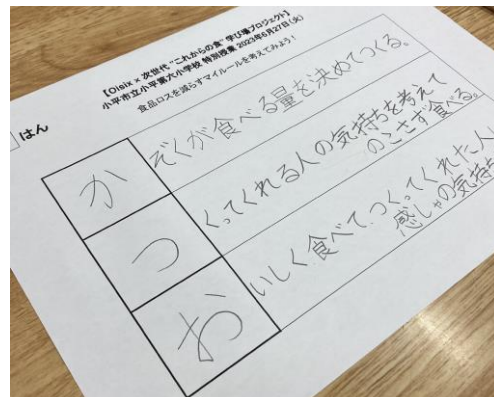 【Oisix × 次世代 “これからの食” 学び場プロジェクト】
小平市立小平第六小学校 特別授業 2023年6月27日(火)
食品ロスを減らすマイルールを考えてみよう！
はん
か ぞくが食べる量を決めてつくる。
つ くってくれる人の気持ちを考えて
のこさず食べる。
お いしく食べて、つくってくれた人
感しゃの気持